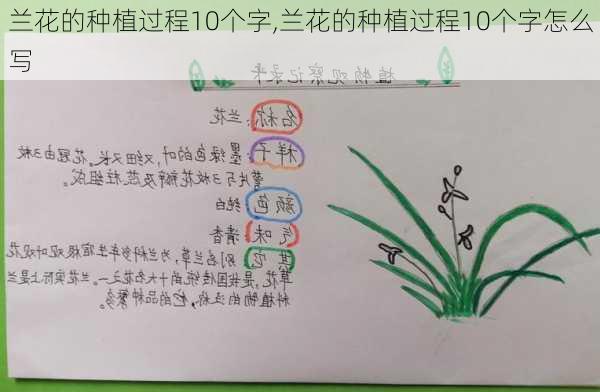 兰花的种植过程10个字,兰花的种植过程10个字怎么
写
植物观察记录卡
名称:兰花
样子:墨绿色的叶,又细又长。花冠由3枚
萼片与3枚花瓣及蕊柱组成。
颜色:纯白
气味:清香
其它:别名兰草,为兰科多年生宿根观叶观花
草花,是我国传统的十大名花之一。兰花实际上是兰
种植物的泛称,它的品种繁多。